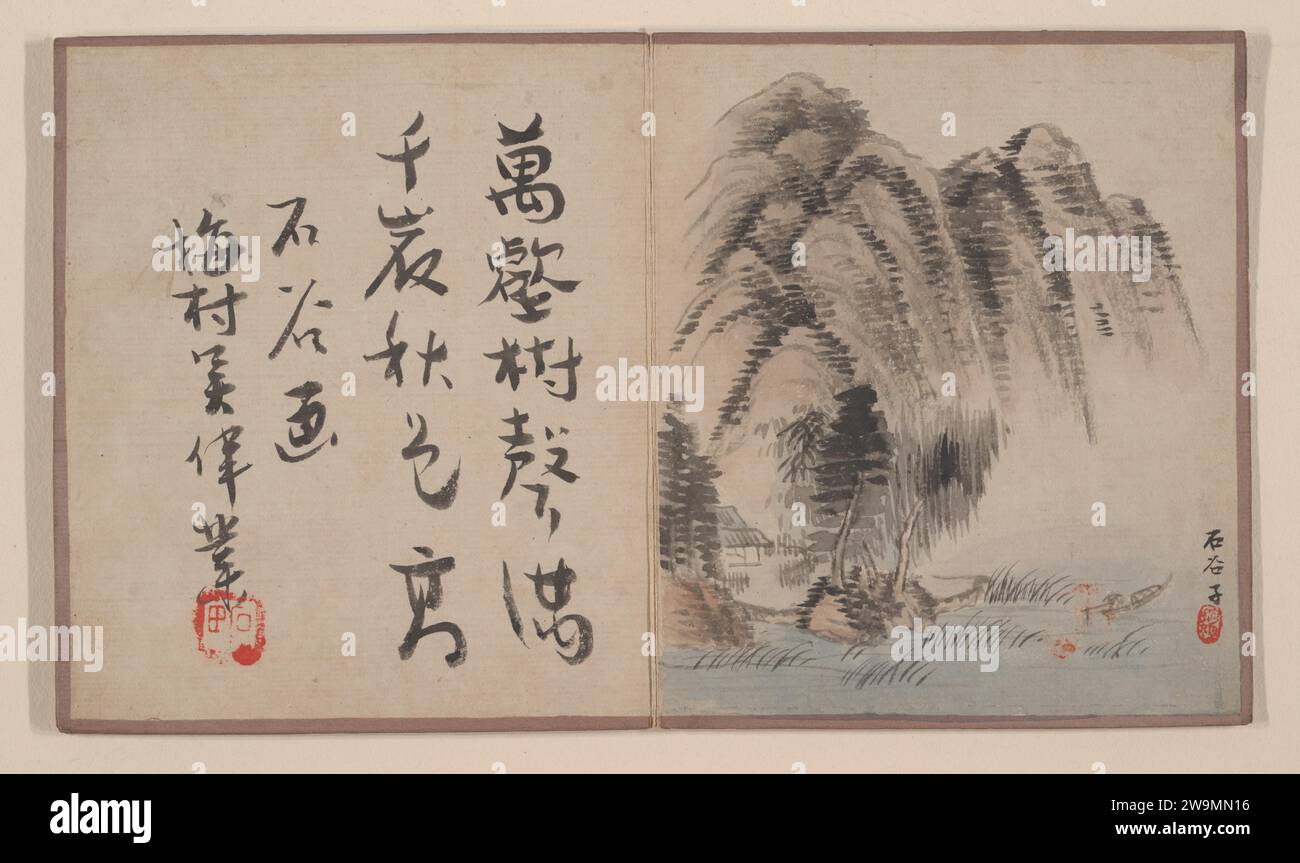 萬壑樹聲滿
千巖秋色高
石谷画
梅村吴偉業
石谷子
alamy
Image ID: 2W9MN16
www.alamy.com